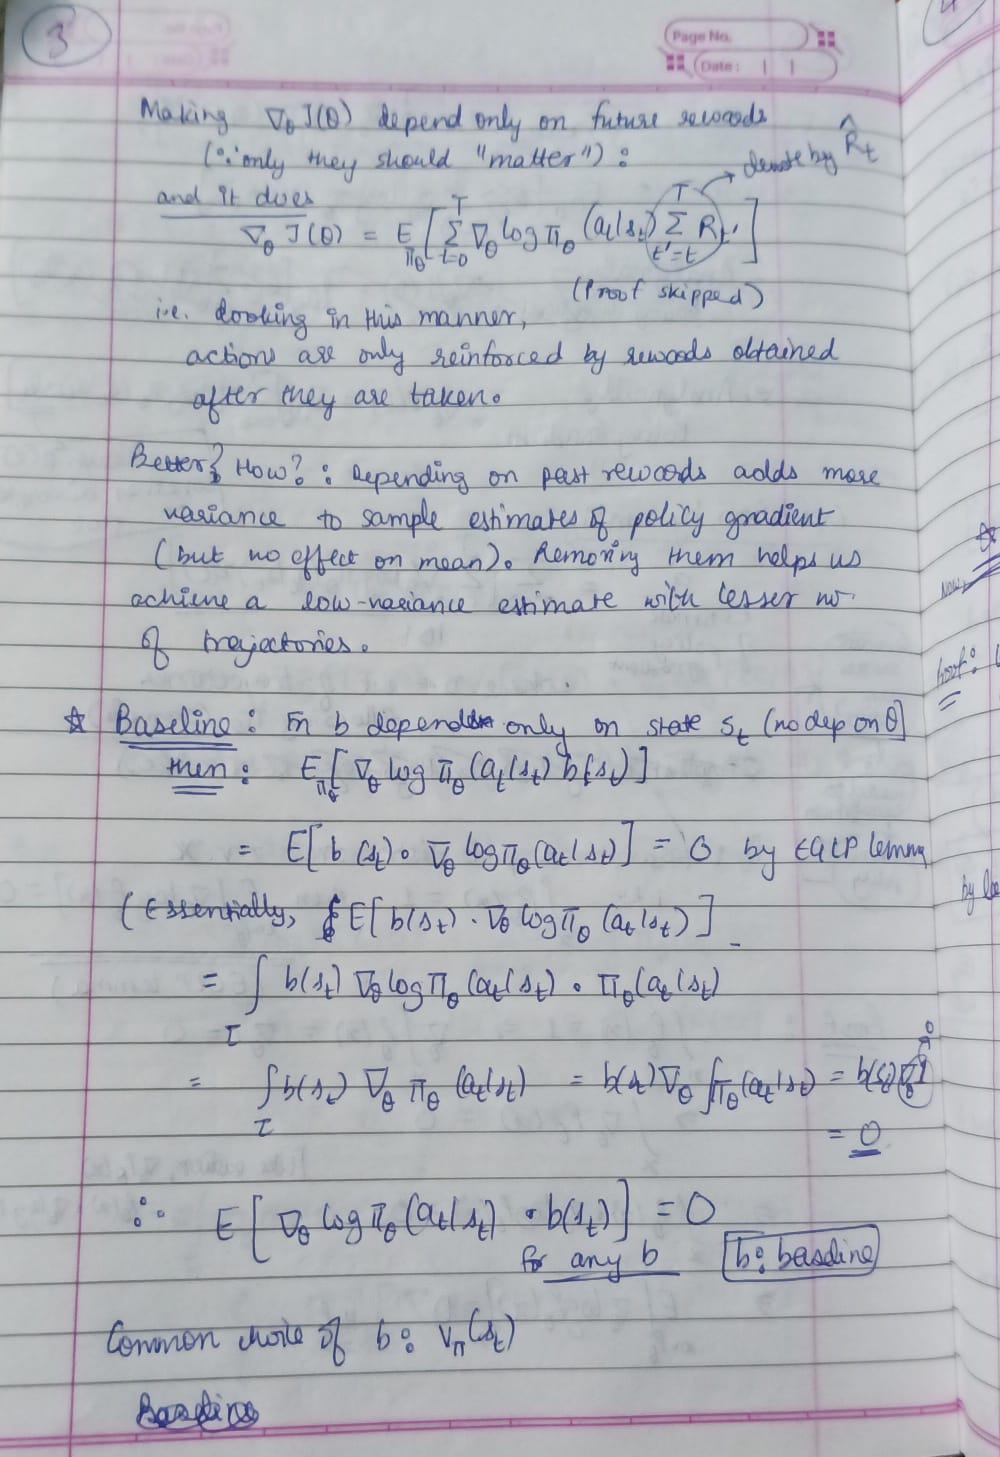 3
Page No.
Date: | |
Making ∇θ J(θ) depend only on future rewards
(∵ only they should "matter") : → denote by R̂t
and it does
∇θ J(θ) = E_πθ [ Σ_{t=0}^{T} ∇θ log πθ (at|st) Σ_{t'=t}^{T} Rt' ]
(Proof skipped)
i.e. looking in this manner,
actions are only reinforced by rewards obtained
after they are taken.
Better? How? : Depending on past rewards adds more
variance to sample estimates of policy gradient
(but no effect on mean). Removing them helps us
achieve a low-variance estimate with lesser no.
of trajectories.
☆ Baseline : Fn b depend only on state st (no dep on θ)
then : E_πθ [ ∇θ log πθ (at|st) b(st) ]
= E[ b(st) · ∇θ log πθ (at|st) ] = 0 by EGLP lemma
(Essentially, E[ b(st) · ∇θ log πθ (at|st) ]
= ∫_τ b(st) ∇θ log πθ (at|st) · πθ (at|st)
= ∫_τ b(st) ∇θ πθ (at|st) = b(st) ∇θ ∫ πθ (at|st) = b(st) ∇θ 1 → 0
= 0
∴ E [ ∇θ log πθ (at|st) · b(st) ] = 0
for any b b: baseline
Common choice of b : Vπ(st)
Baseline
Now,
Proof: